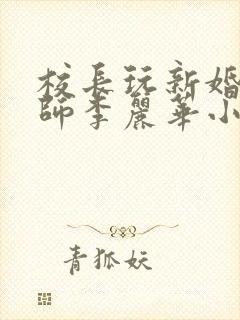 校長玩新婚
師李麗華小
青狐妖